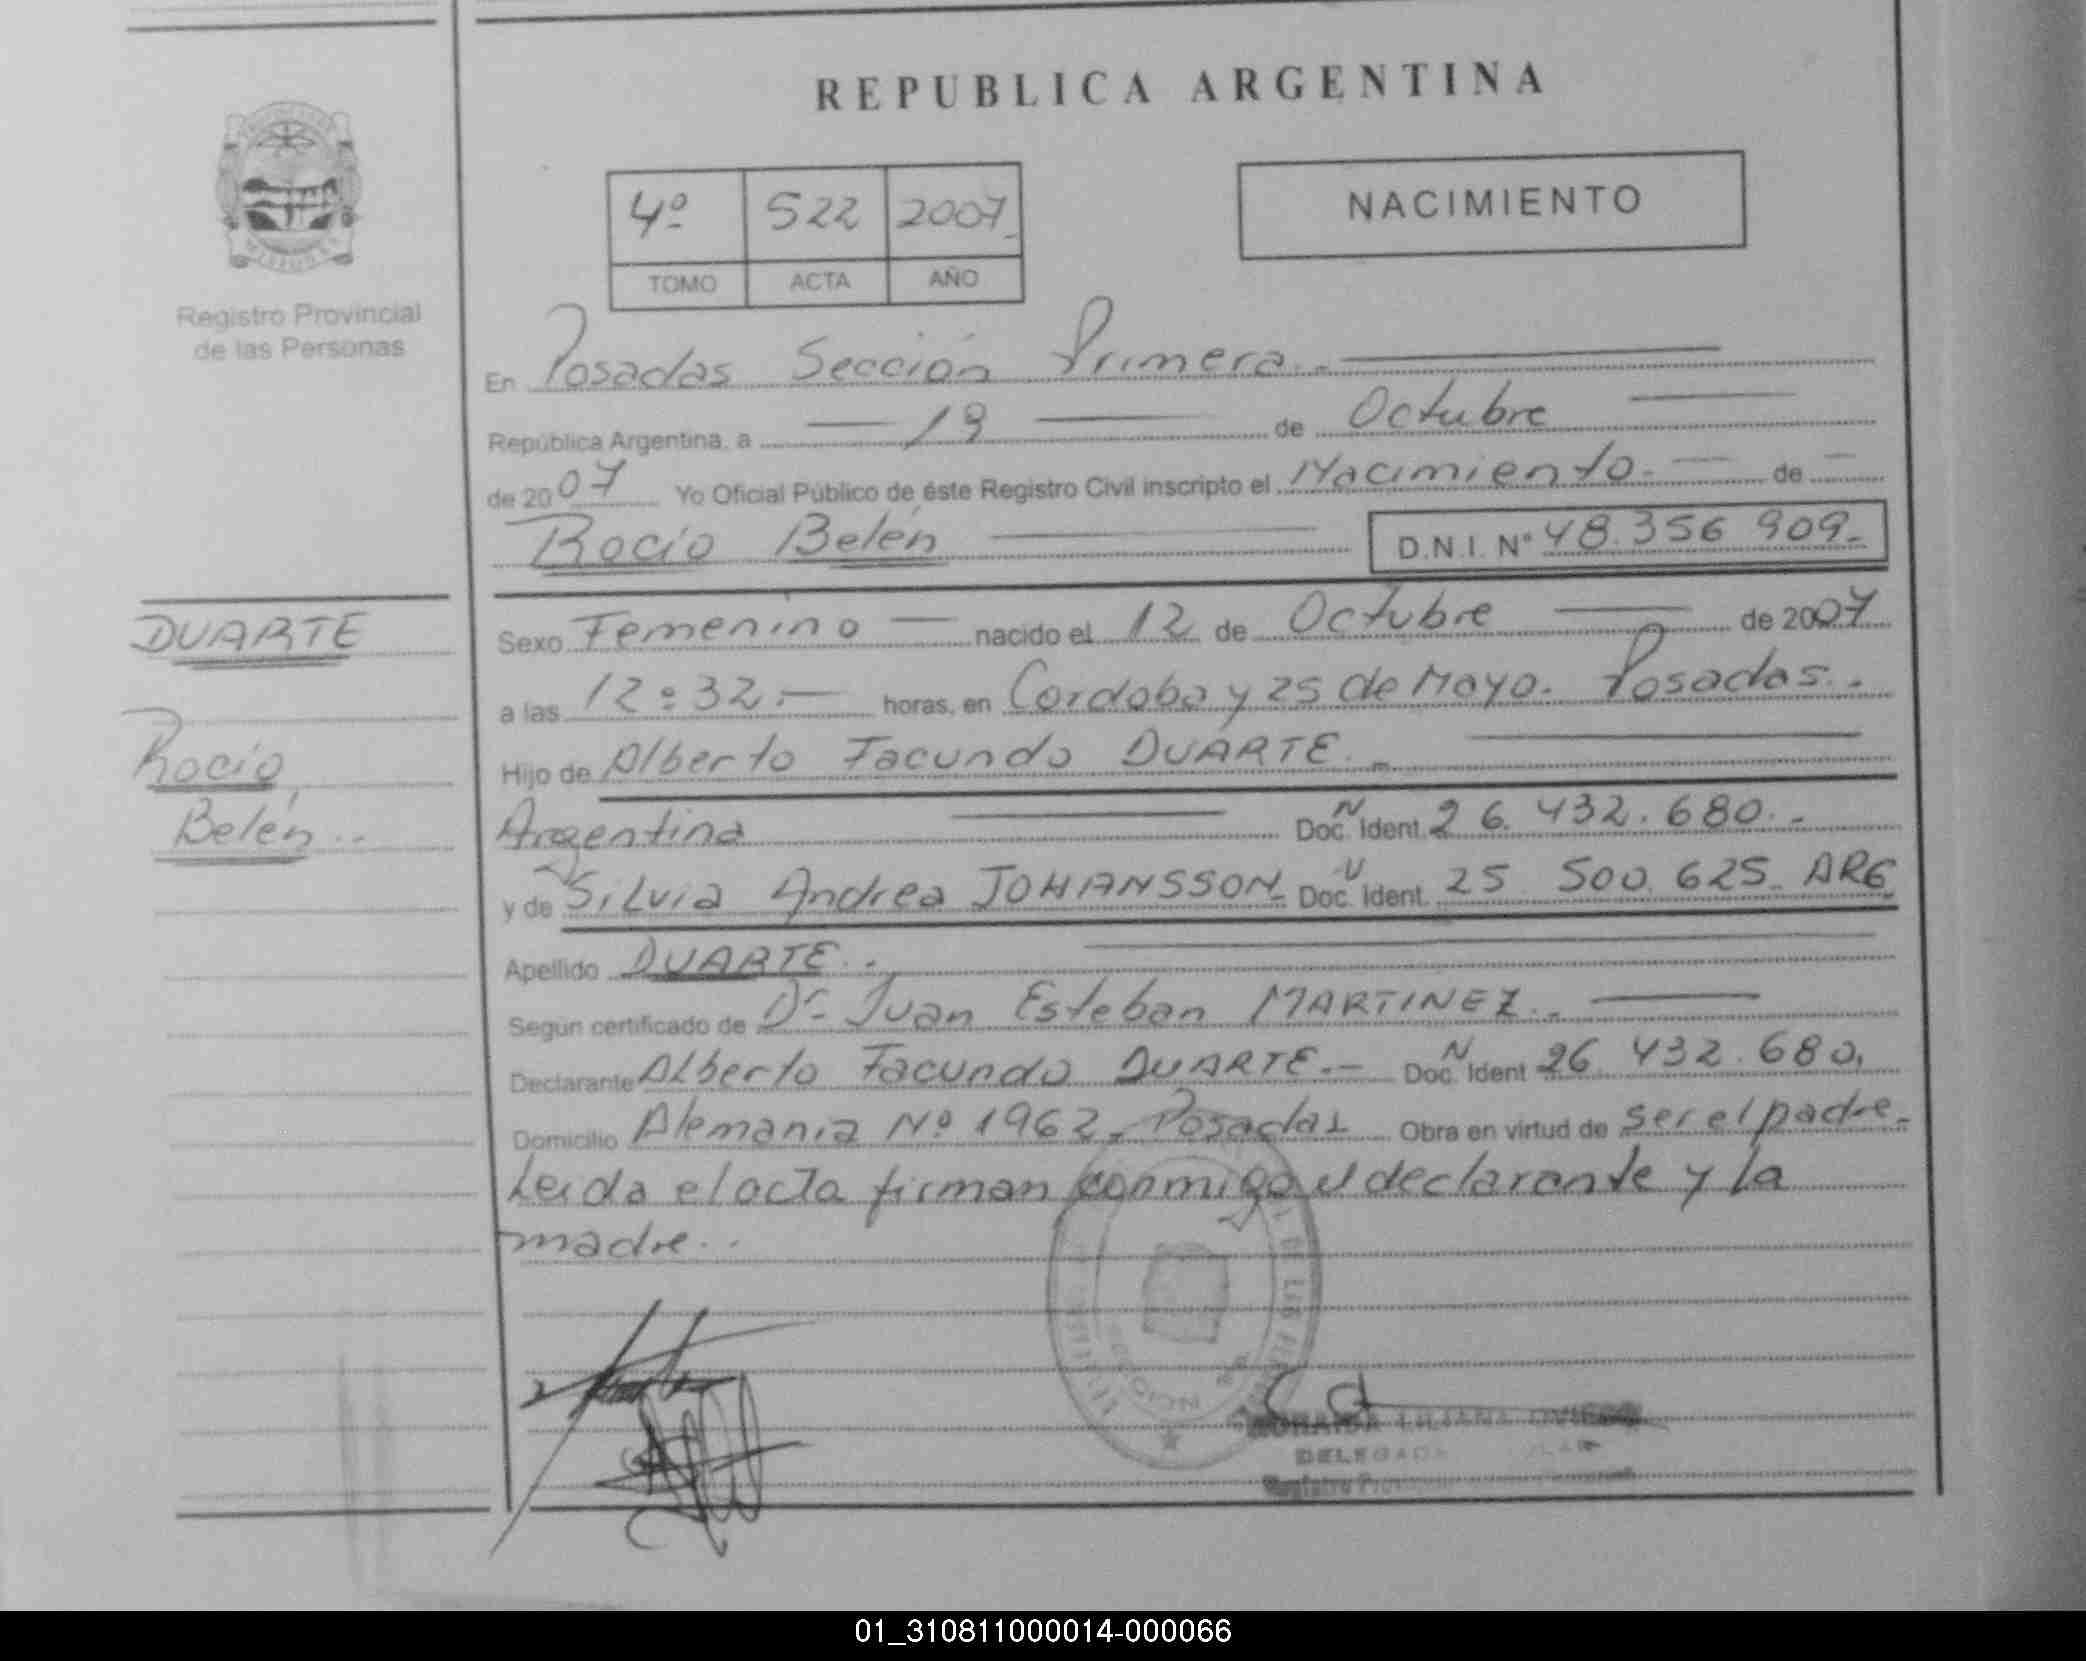 REPUBLICA ARGENTINA
NACIMIENTO
4º 522 2007
TOMO ACTA AÑO
MISIONES
Registro Provincial
de las Personas
En Posadas Sección Primera.-
República Argentina, a 19 de Octubre
de 2007 Yo Oficial Público de éste Registro Civil inscripto el Nacimiento.- de
Rocío Belén D.N.I. Nº 48.356 909.-
DUARTE
Rocío
Belén..
Sexo Femenino nacido el 12 de Octubre de 2007
a las 12:32.- horas, en Cordoba y 25 de Mayo. Posadas.-
Hijo de Alberto Facundo DUARTE.-
Argentina Doc. N Ident. 26.432.680.-
y de Silvia Andrea JOHANSSON Doc. Ident. 25 500.625. ARG
Apellido DUARTE..
Según certificado de Dr. Juan Esteban MARTINEZ.-
Declarante Alberto Facundo DUARTE.- Doc. N Ident 26.432.680.
Domicilio Alemania Nº 1962. Posadas Obra en virtud de ser el padre.
Leida el acta firman conmigo el declarante y la
madre..
LILIANA OVIEDO
DELEGADA
Registro
01_310811000014-000066